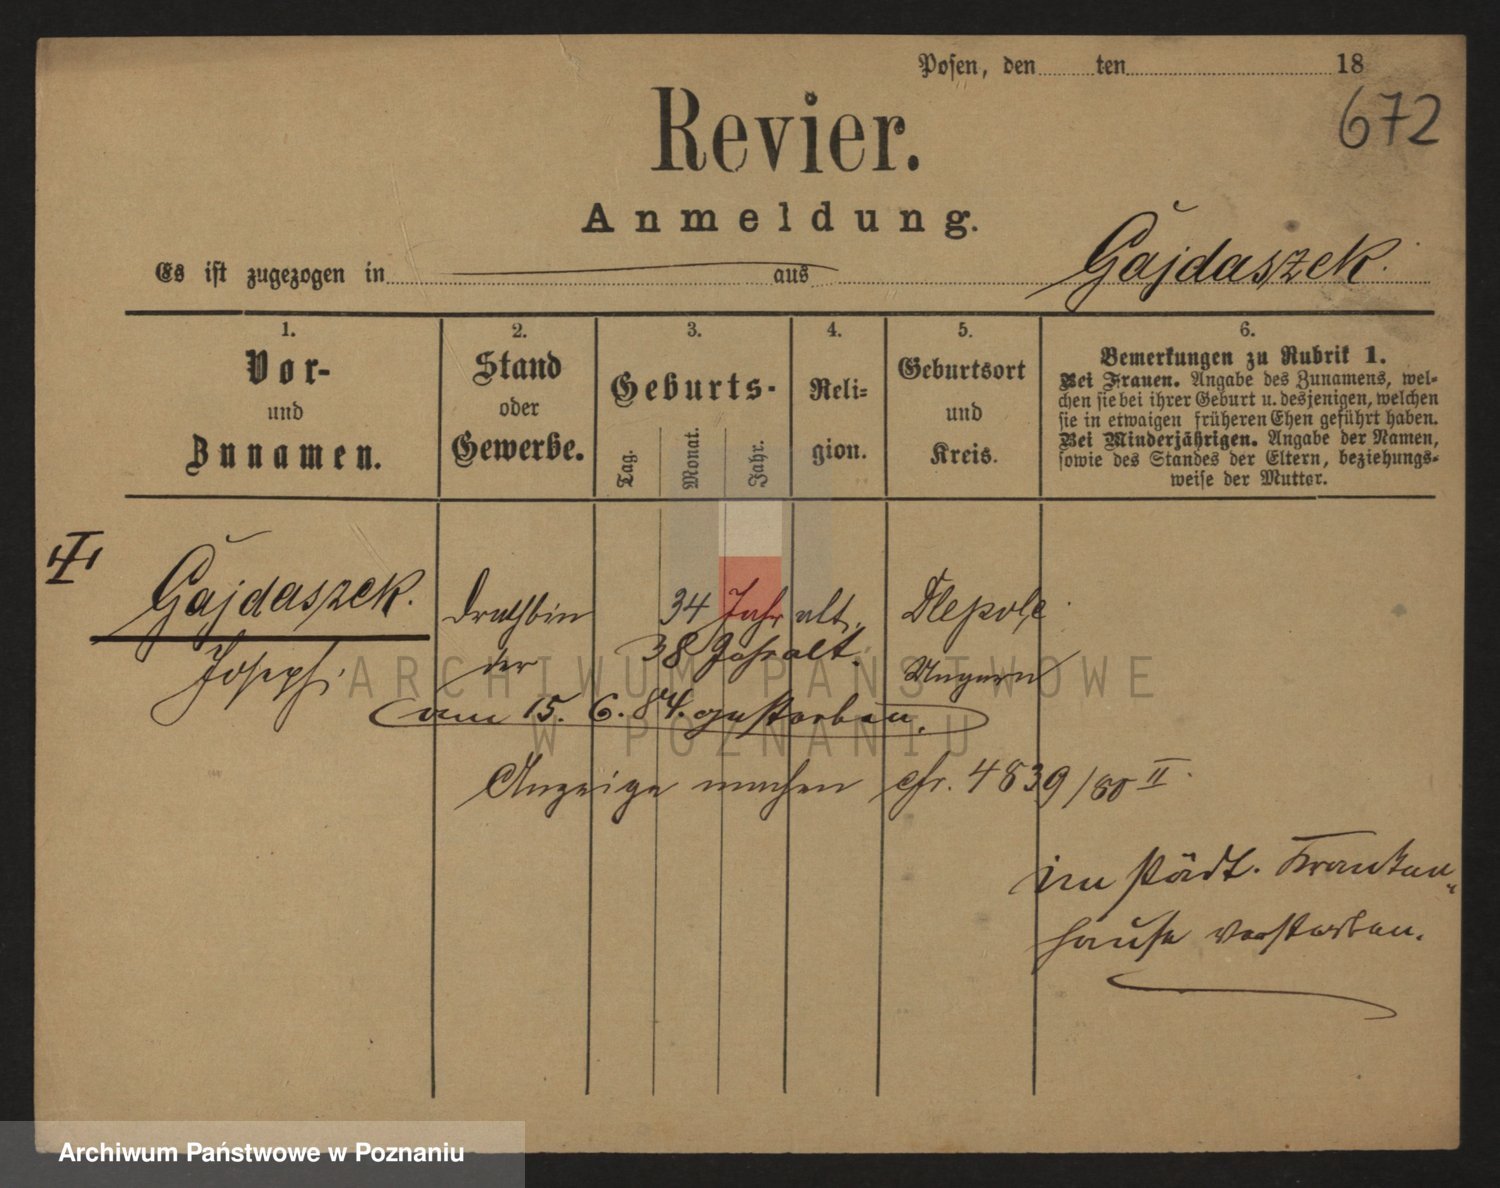 Posen, den ten 18
672
Revier.
Anmeldung.
Es ist zugezogen in aus Gajdaszek.
1. 2. 3. 4. 5. 6.
Vor- und Zunamen.
Stand oder Gewerbe.
Geburts-
Tag. Monat. Jahr.
Reli-
gion.
Geburtsort und Kreis.
Bemerkungen zu Rubrik 1.
Bei Frauen. Angabe des Zunamens, wel-
chen sie bei ihrer Geburt u. desjenigen, welchen
sie in etwaigen früheren Ehen geführt haben.
Bei Minderjährigen. Angabe der Namen,
sowie des Standes der Eltern, beziehungs-
weise der Mutter.
Gajdaszek. Drathbin 34 Jahr alt. Dlepole
Joseph. der 38 Jahr alt. Ungarn
am 15. 6. 84. gestorben.
Anzeige machen cfr. 4839/80 II.
im städt. Kranken-
hause verstorben.
ARCHIWUM PAŃSTWOWE
W POZNANIU
Archiwum Państwowe w Poznaniu